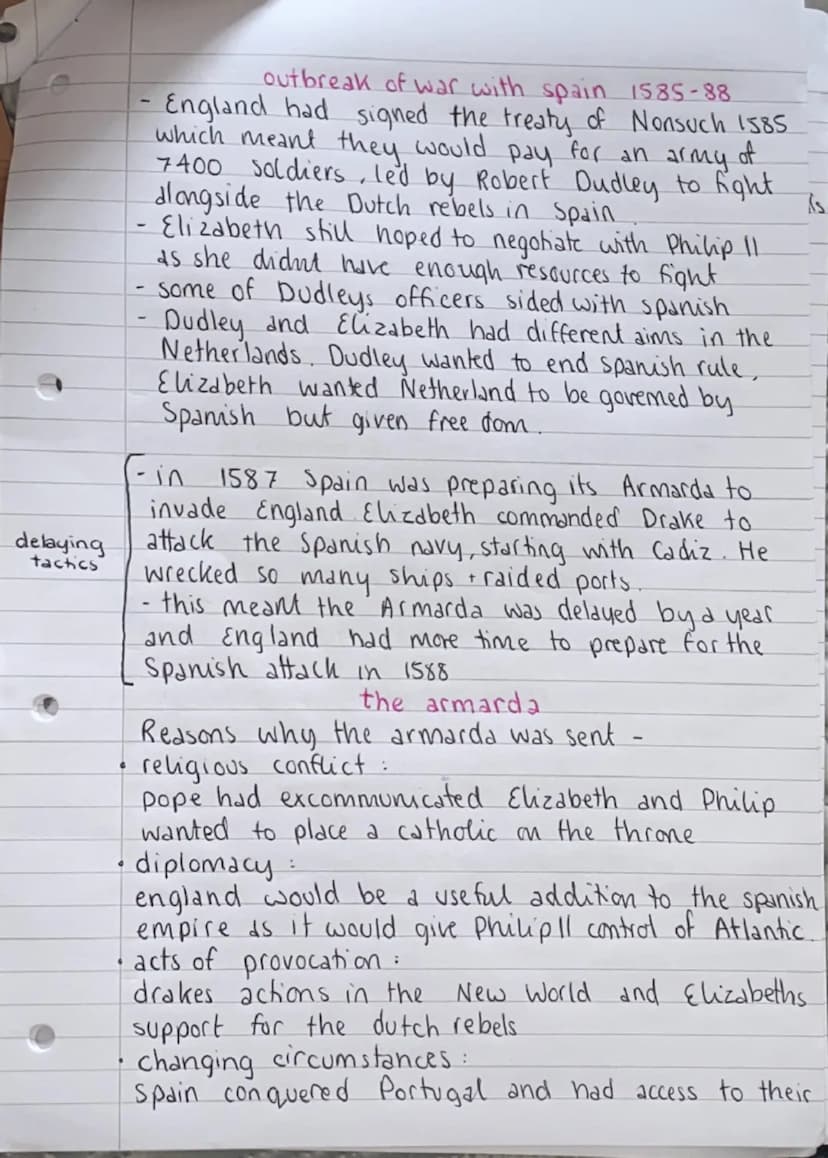 outbreak of war with spain 1585-88
- England had signed the treaty of Nonsuch 1585
which meant they would pay for an army of
7400 soldiers, led by Robert Dudley to fight
alongside the Dutch rebels in Spain
- Elizabeth still hoped to negotiate with Philip II
as she didnt have enough resources to fight
- some of Dudleys officers sided with spanish
- Dudley and Elizabeth had different aims in the
Netherlands. Dudley wanted to end spanish rule,
Elizabeth wanted Netherland to be governed by
Spanish but given free dom.
- in 1587 Spain was preparing its Armarda to
invade England. Elizabeth commanded Drake to
delaying tactics
attack the Spanish navy, starting with Cadiz. He
wrecked so many ships + raided ports.
- this meant the Armarda was delayed by a year
and England had more time to prepare for the
Spanish attack in 1588
the armarda
Reasons why the armarda was sent -
• religious conflict :
pope had excommunicated Elizabeth and Philip
wanted to place a catholic on the throne
• diplomacy :
england would be a useful addition to the spanish
empire as it would give Philip II control of Atlantic.
• acts of provocation :
drakes actions in the New World and Elizabeths
support for the dutch rebels
• changing circumstances :
Spain conquered Portugal and had access to their